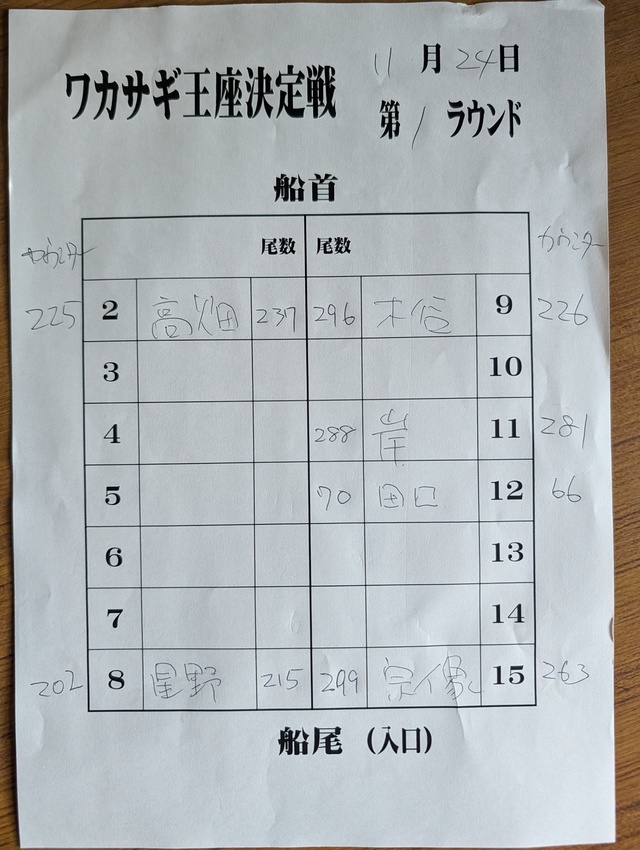 ワカサギ王座決定戦
11月24日
第1ラウンド
船首
カウンター 尾数 尾数 カウンター
225 2 高畑 237 296 9 226
3 10
4 288 岸 11 281
5 70 田口 12 66
6 13
7 14
202 8 星野 215 299 宗像 15 263
船尾(入口)